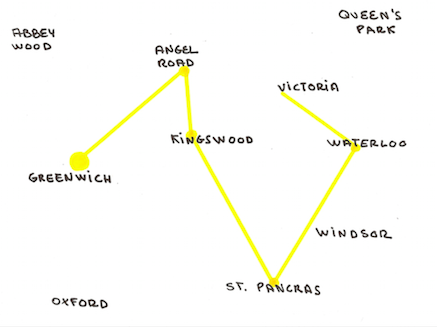 ABBEY
WOOD
QUEEN'S
PARK
ANGEL
ROAD
VICTORIA
KINGSWOOD
WATERLOO
GREENWICH
WINDSOR
ST. PANCRAS
OXFORD